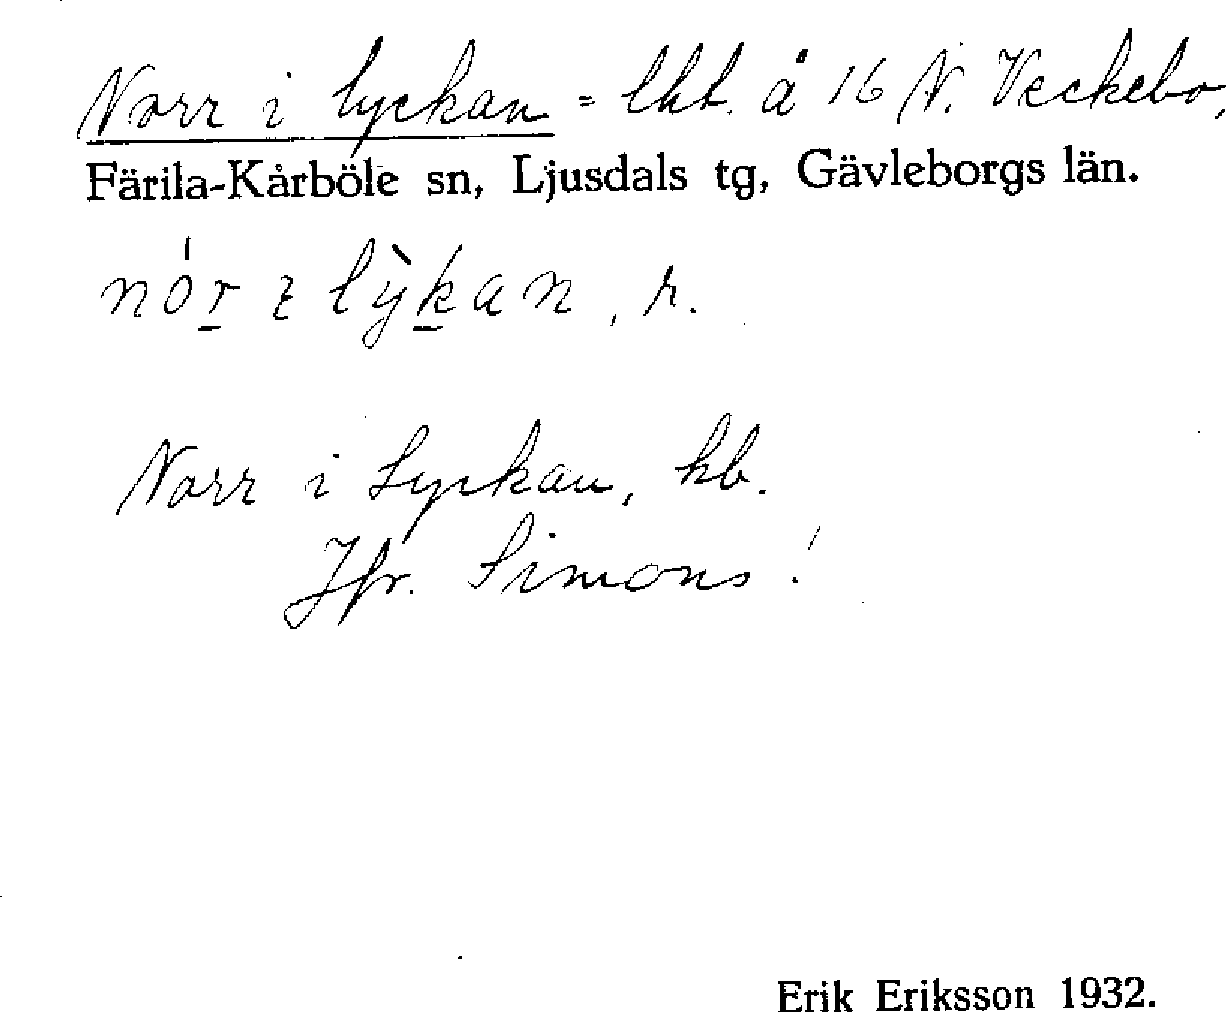 Norr i lyckan = lht. å 16 N. Veckebo,
Färila-Kårböle sn, Ljusdals tg, Gävleborgs län.
nór ɩ lỳkan, r.
Norr i Lyckan, kb.
Jfr. Simons!
Erik Eriksson 1932.